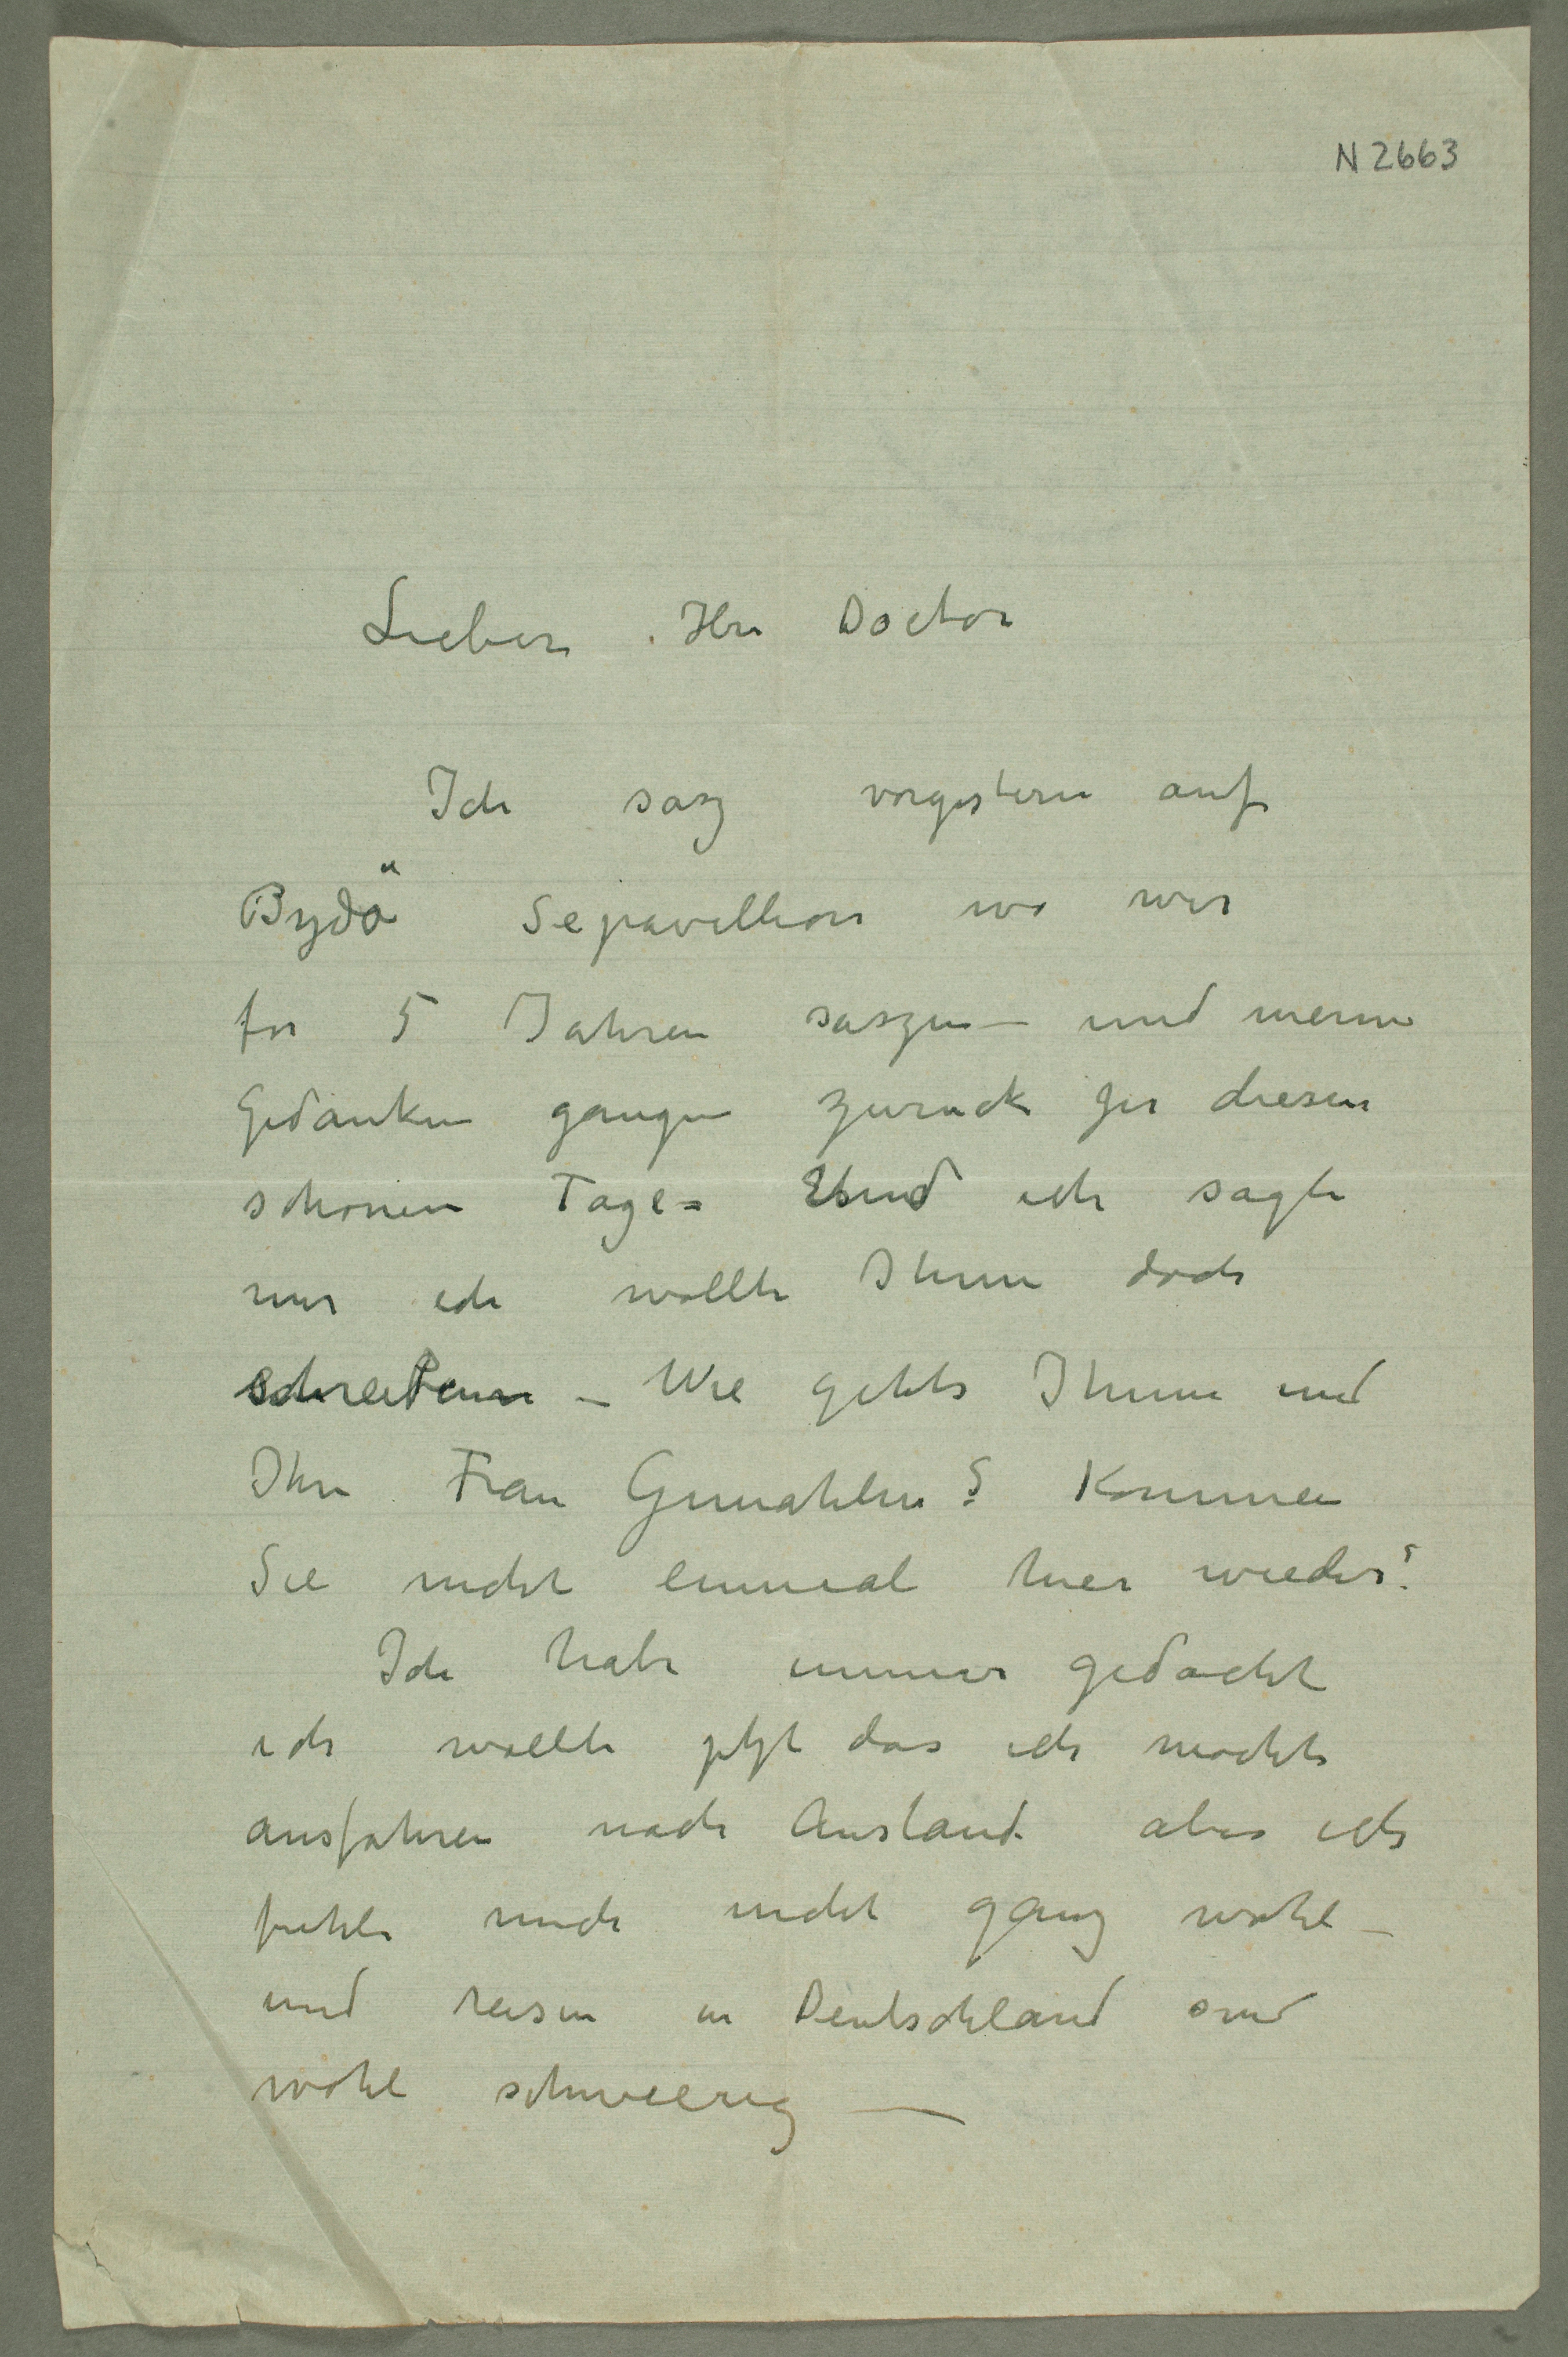 N 2663
Lieber Herr Doctor
Ich sasz vorgestern auf
Bydö Sepavillion wo wir
for 5 Jahren saszen – und meine
Gedanken gangen zuruck zu diesen
schonen Tage = Und ich sagte
mir ich wollte Ihnen doch
schreiben – Wie gehts Ihnen und
Ihre Frau Gemahlin? Kommen
Sie nicht einmal hier wieder?
Ich habe immer gedacht
ich wollte jetzt das ich mochte
ausfahren nach Ausland aber ich
fuhle mich nicht ganz wohl –
und reisen in Deutschland sind
wohl schwierig —